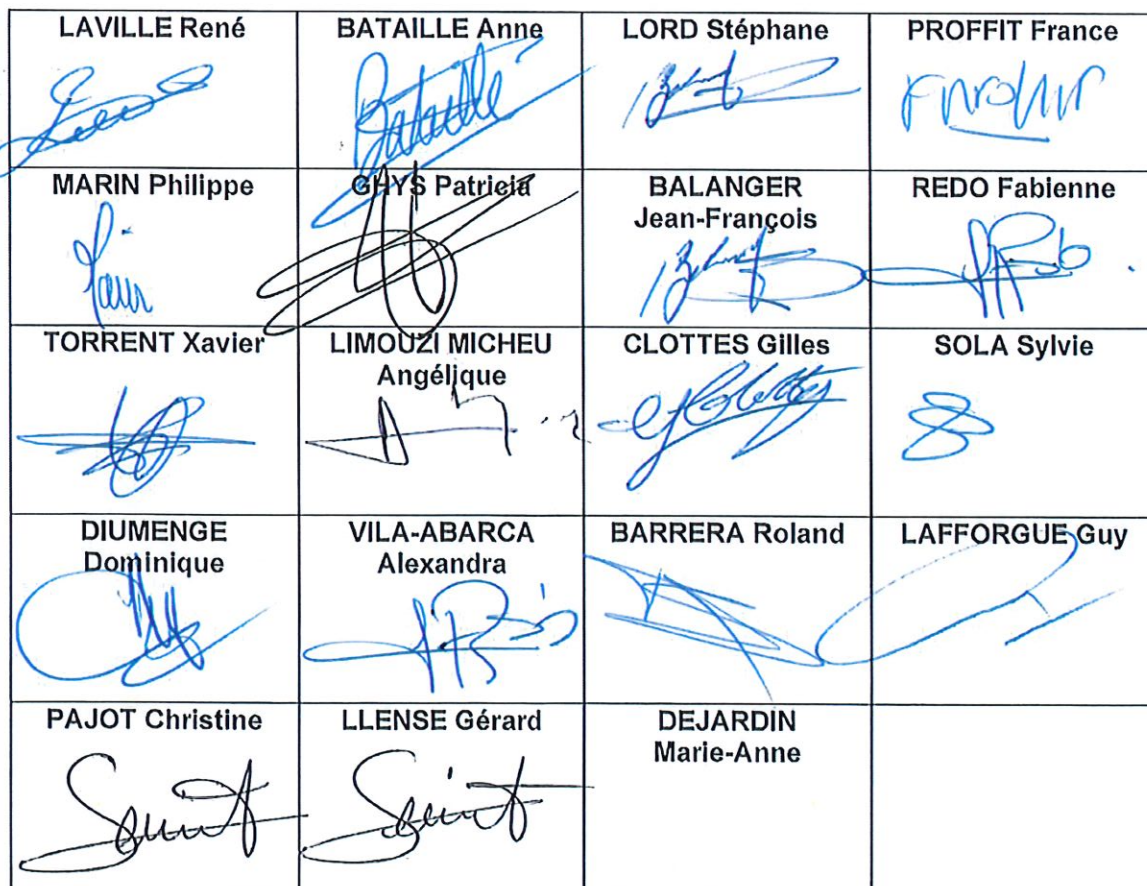 LAVILLE René
BATAILLE Anne
LORD Stéphane
PROFFIT France
Bataille
MARIN Philippe
GHYS Patricia
BALANGER
Jean-François
REDO Fabienne
TORRENT Xavier
LIMOUZI MICHEU
Angélique
CLOTTES Gilles
SOLA Sylvie
DIUMENGE
Dominique
VILA-ABARCA
Alexandra
BARRERA Roland
LAFFORGUE Guy
PAJOT Christine
LLENSE Gérard
DEJARDIN
Marie-Anne